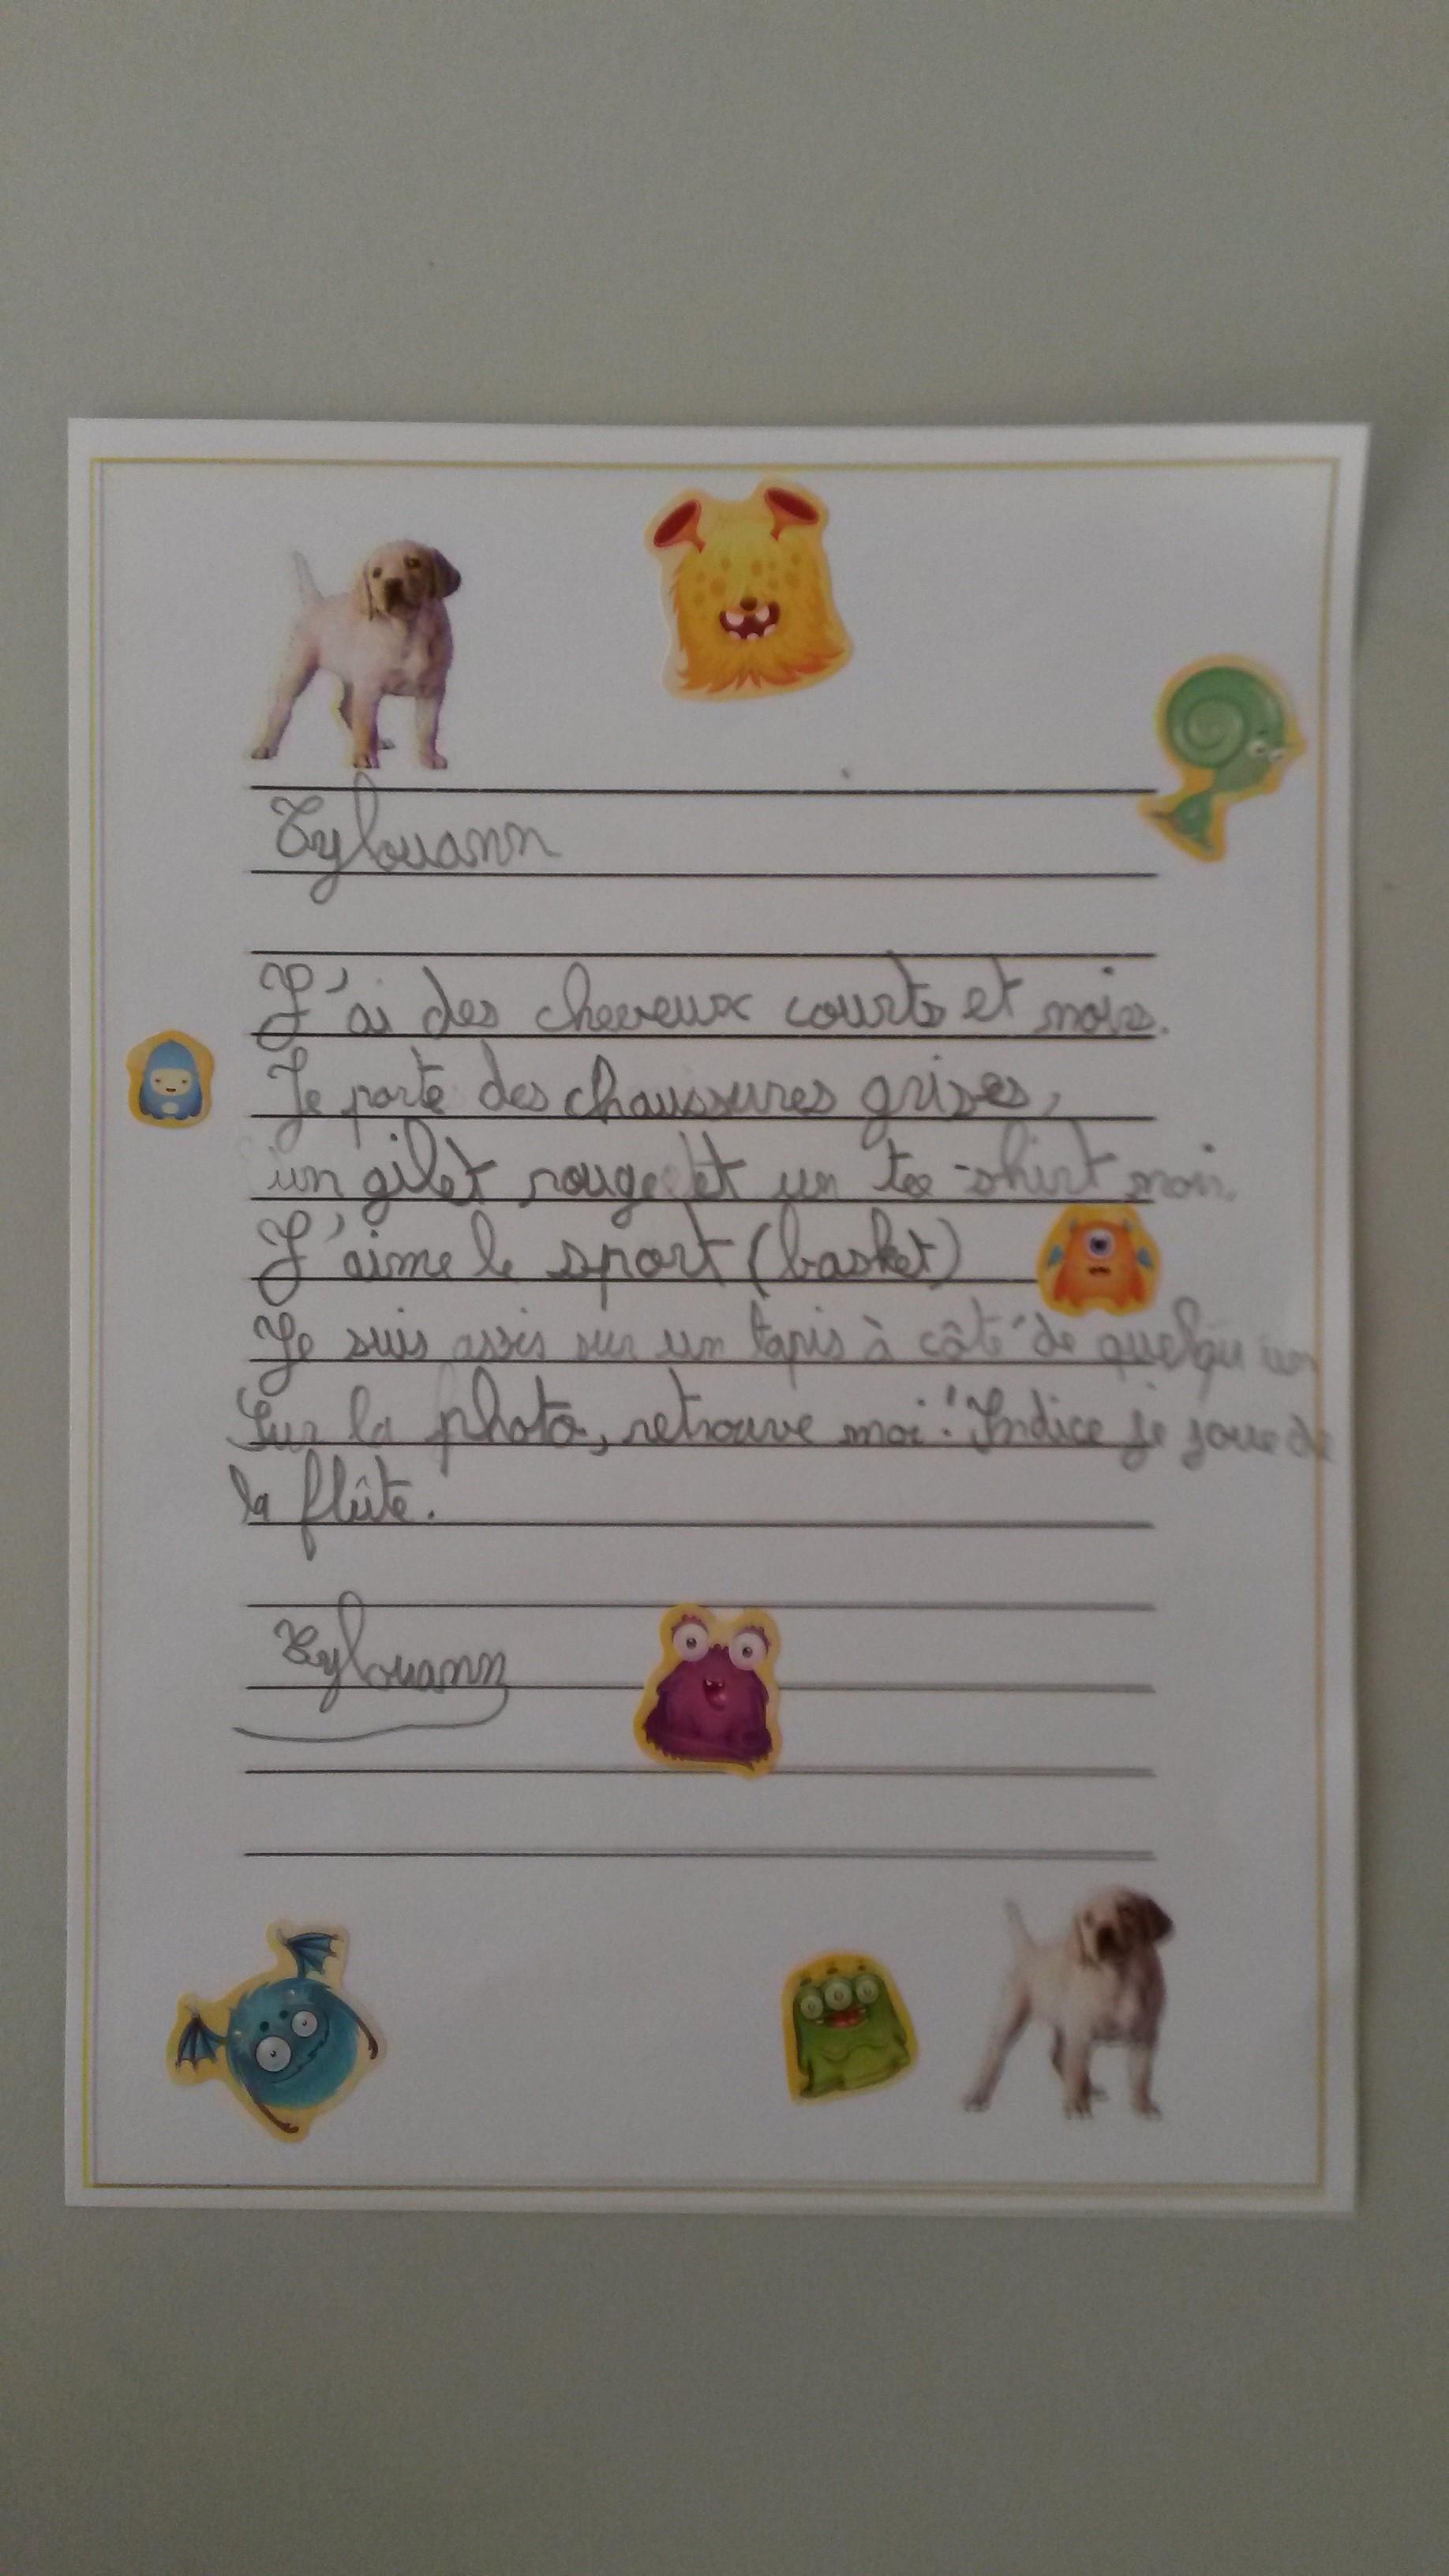 Tylouann
J'ai des cheveux courts et noirs.
Je porte des chaussures grises,
un gilet rouge et un tee-shirt noir.
J'aime le sport (basket)
Je suis assis sur un tapis à côté de quelqu'un
Sur la photo, retrouve moi! Indice je joue de
la flûte.
Tylouann